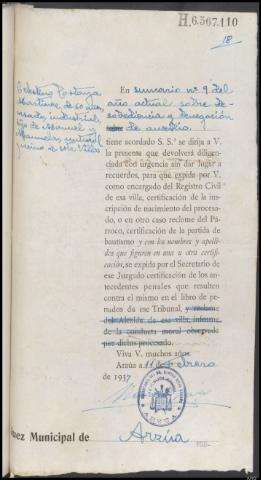 H.6.567.110
18
Celestino Postoya
Martínez, de 60 años,
casado, industrial,
hijo de Manuel y
Manuela, natural y
vecino de esta Villa
En sumario nº 9 del
año actual sobre de-
sobediencia a denegación
de auxilio
tiene acordado S. Sª se dirija a V.
la presente que devolverá diligen-
ciada con urgencia sin dar lugar a
recuerdos, para que expido por V.
como encargado del Registro Civil
de esa villa, certificación de la ins-
cripción de nacimiento del procesa-
do, o en otro caso reclame del Pá-
rroco, certificación de la partida de
bautismo y con los nombres y apelli-
dos que figuren en una u otra certifi-
cación, se expida por el Secretario de
ese Juzgado certificación de los an-
tecedentes penales que resulten
contra el mismo en el libro de pe-
nados da ese Tribunal, y reclame
del Alcalde de esa villa, informe
de la conducta moral observada
por dicho procesado.
Viva V. muchos años
Arzúa a 11 de Febrero
de 1937
ARZUA
uez Municipal de Arzúa